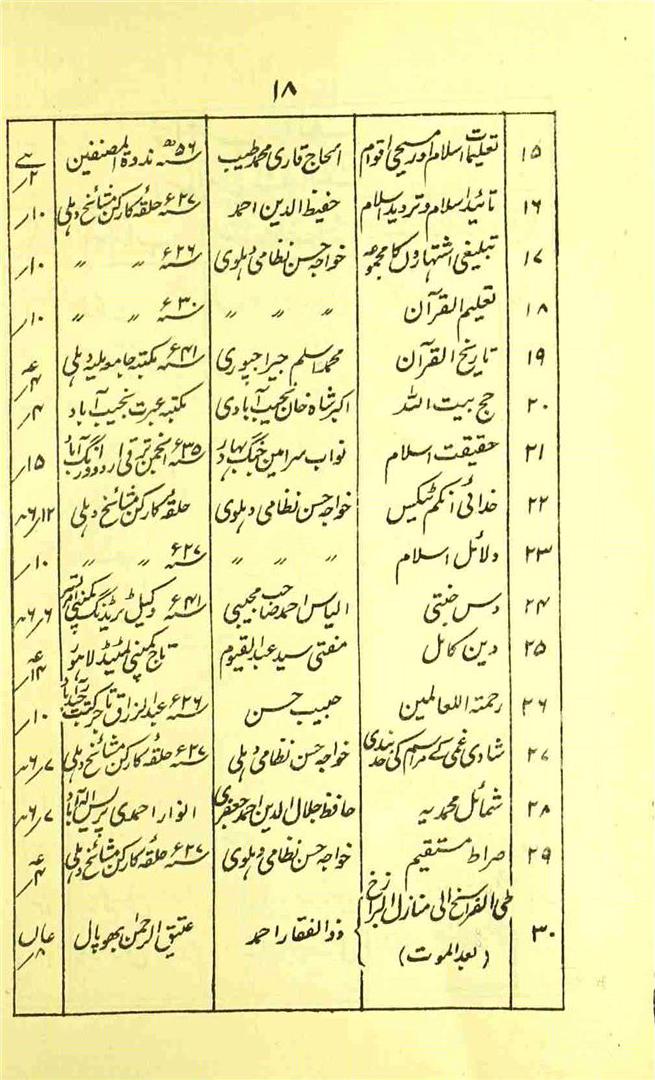 ۱۸
۱۵ تعلیمات اسلام اور مسیحی اقوام الحاج قاری محمد طیب سنہ ۵۶ھ ندوة المصنفین
۱۶ تائید اسلام و تردید اسلام حفیظ الدین احمد سنہ ۶۲۷ حلقہ کارکن مشائخ دہلی ۱۰ر
۱۷ تبلیغی اشتہاروں کا مجموعہ خواجہ حسن نظامی دہلوی سنہ ۶۲۶ " " ۱۰ر
۱۸ تعلیم القرآن " " " سنہ ۶۳۰ " " ۱۰ر
۱۹ تاریخ القرآن محمد اسلم جیراجپوری سنہ ۶۴۱ مکتبہ جامعہ ملیہ دہلی
۲۰ حج بیت اللہ اکبر شاہ خان نجیب آبادی مکتبہ عبرت نجیب آباد ۴ر
۲۱ حقیقت اسلام نواب سر امین جنگ بہادر سنہ ۶۳۵ انجمن ترقی اردو اورنگ آباد ۱۵ر
۲۲ خدائی انکم ٹیکس خواجہ حسن نظامی دہلوی حلقہ کارکن مشائخ دہلی
۲۳ دلائل اسلام " " " سنہ ۶۲۷ " " ۱۰ر
۲۴ دس جنتی الیاس احمد صاحب مجیبی سنہ ۶۴۱ وکیل ٹریڈنگ کمپنی امرتسر
۲۵ دین کامل مفتی سید عبد القیوم تاج کمپنی لمیٹڈ لاہور
۲۶ رحمتہ اللعالمین حبیب حسن سنہ ۶۲۶ عبد الرزاق تاجر کتب حیدرآباد ۱۰ر
۲۷ شادی غمی کے مراسم کی حد بندی خواجہ حسن نظامی دہلی سنہ ۶۲۷ حلقہ کارکن مشائخ دہلی
۲۸ شمائل محمدیہ حافظ جلال الدین احمد جعفری انوار احمدی پریس الہ آباد
۲۹ صراط مستقیم خواجہ حسن نظامی دہلوی سنہ ۶۲۷ حلقہ کارکن مشائخ دہلی
۳۰ طی الفراسخ الی منازل البرازخ ذوالفقار احمد عتیق الرحمٰن بھوپال
(بعد الموت)